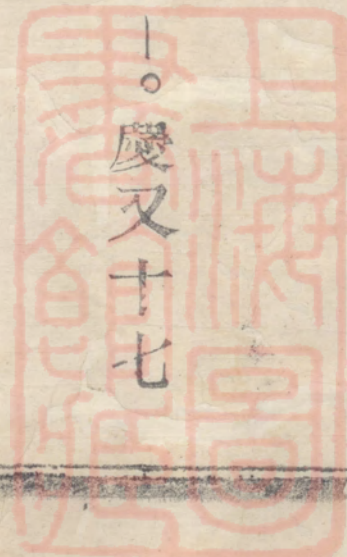 一〇慶又十七
上海图
書館藏